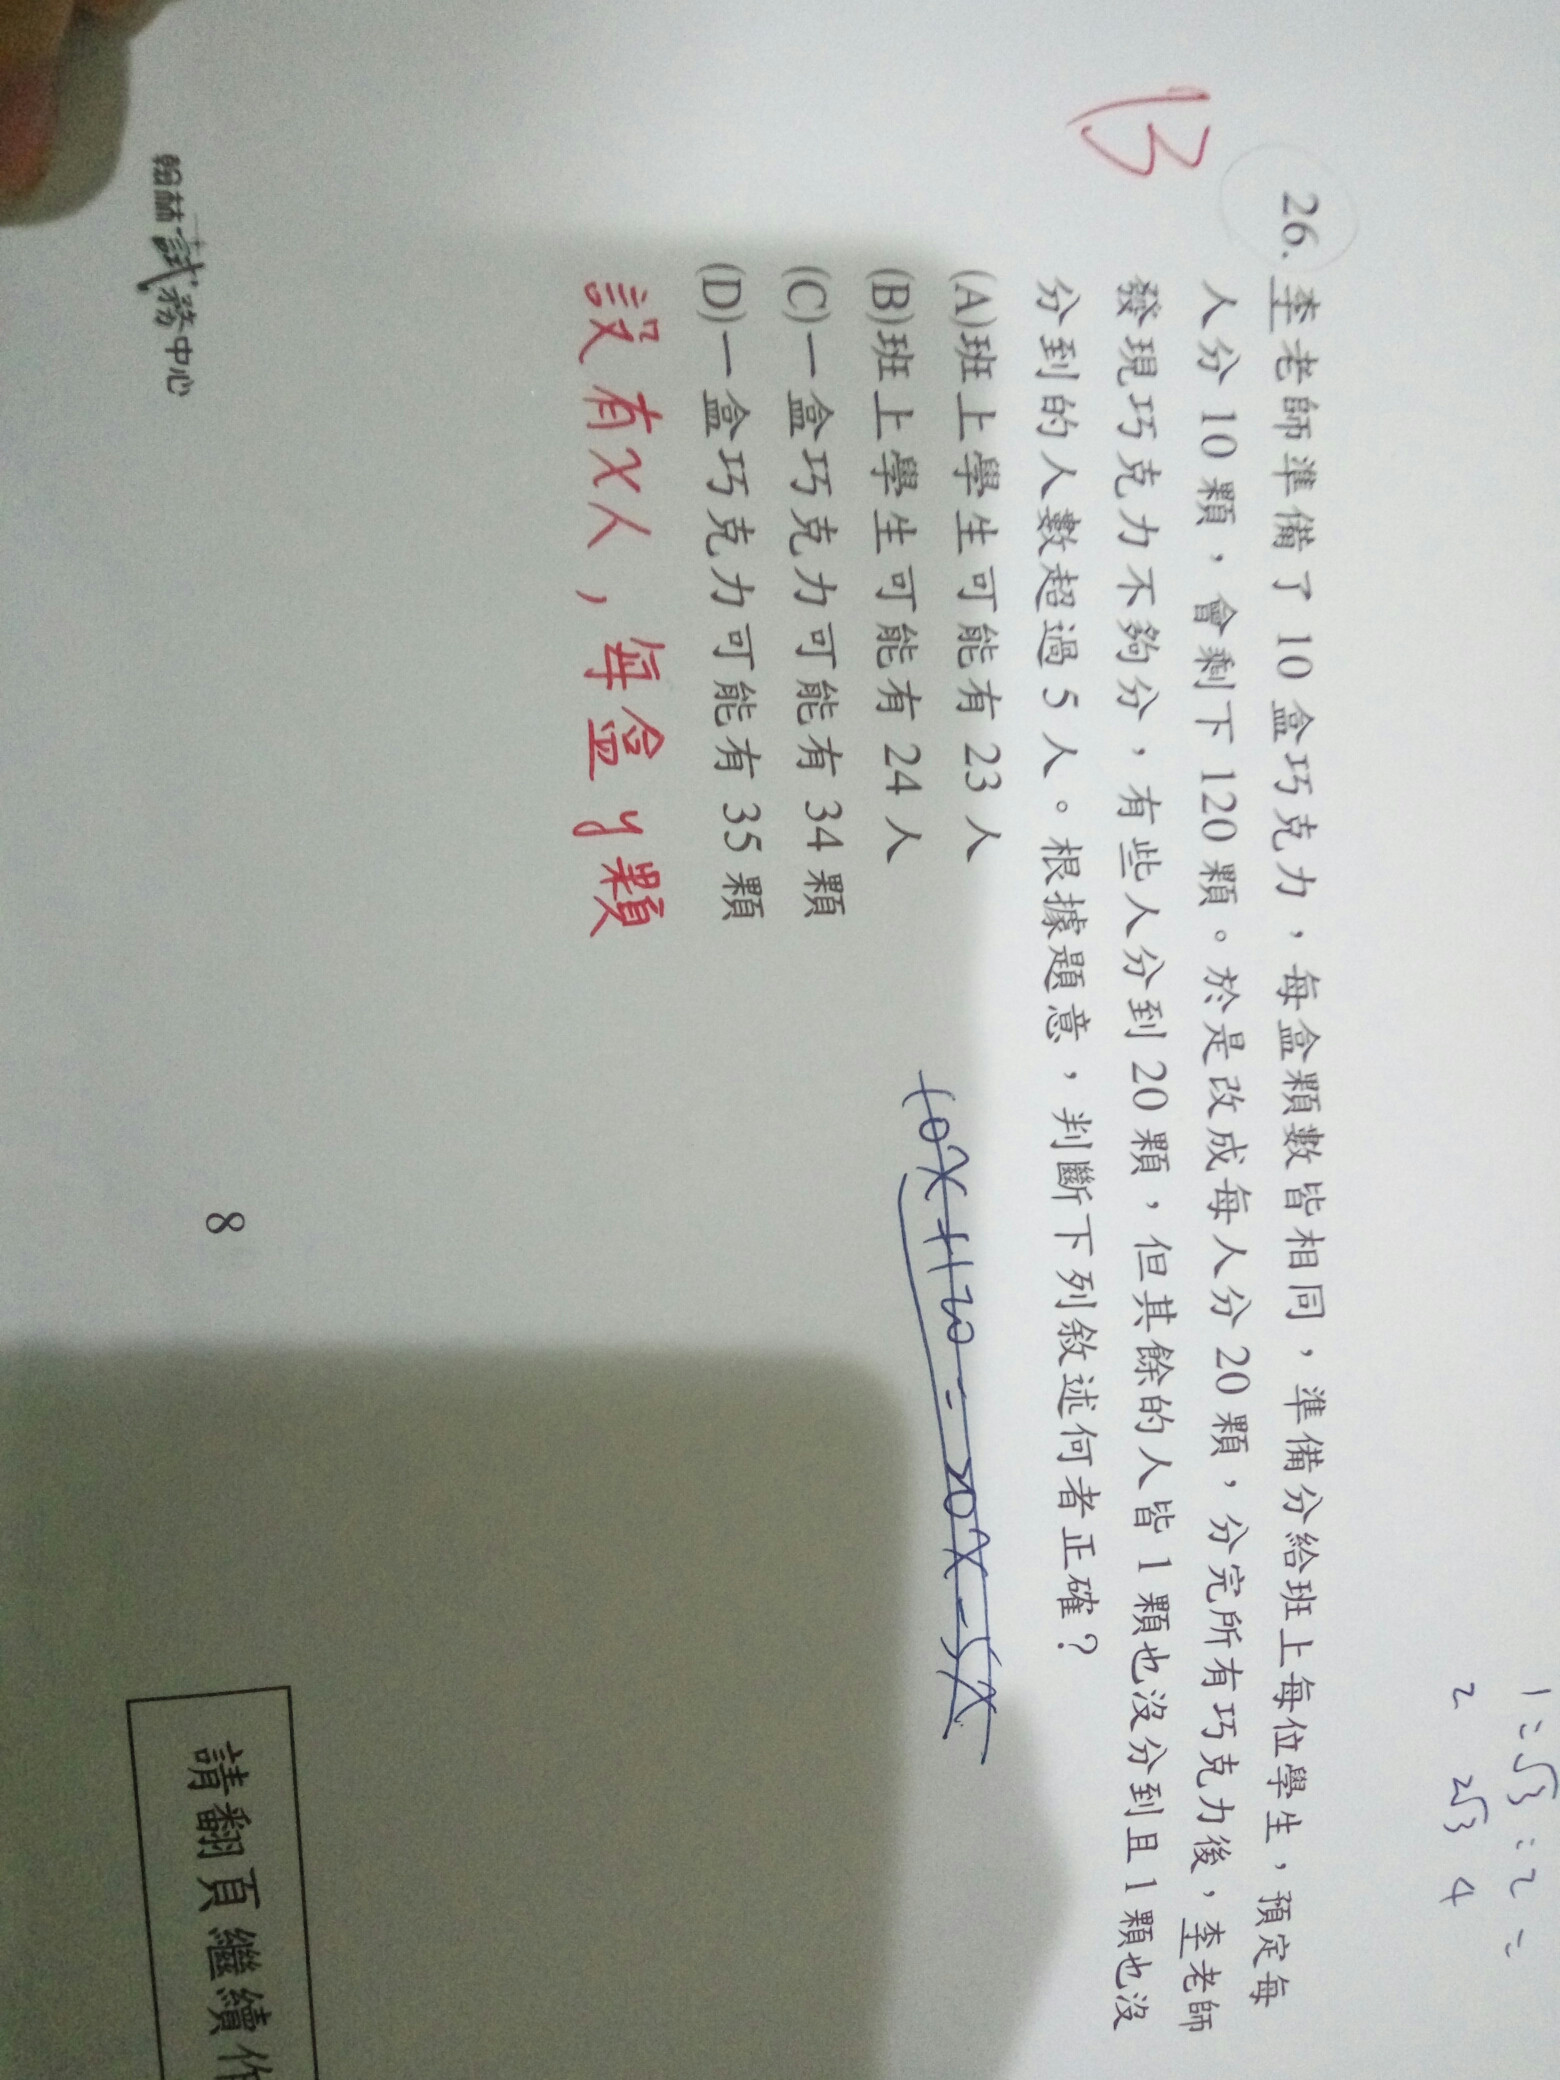 1:√3:2=
2 2√3 4
B
26.李老師準備了10盒巧克力,每盒顆數皆相同,準備分給班上每位學生,預定每
人分10顆,會剩下120顆。於是改成每人分20顆,分完所有巧克力後,李老師
發現巧克力不夠分,有些人分到20顆,但其餘的人皆1顆也沒分到且1顆也沒
分到的人數超過5人。根據題意,判斷下列敘述何者正確?
(A)班上學生可能有23人
(B)班上學生可能有24人
(C)一盒巧克力可能有34顆
(D)一盒巧克力可能有35顆
10x+120=20x-5x
設有x人,每盒y顆
翰林試務中心
8
請翻頁繼續作